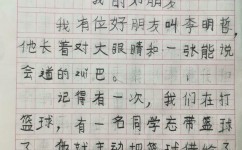 我的好朋友
我有位好朋友叫李明哲，
他长着对大眼睛和一张能说
会道的zuǐ巴。
记得有一次，我们在打
篮球，有一名同学忘带篮球
了，他就主动把篮球借给了